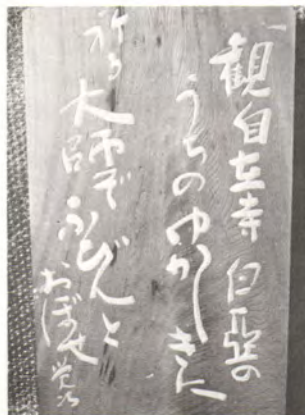 観自在寺 白亞の
うちの ゆかしきに
祈る
大師ぞ ふびんと
おぼせ